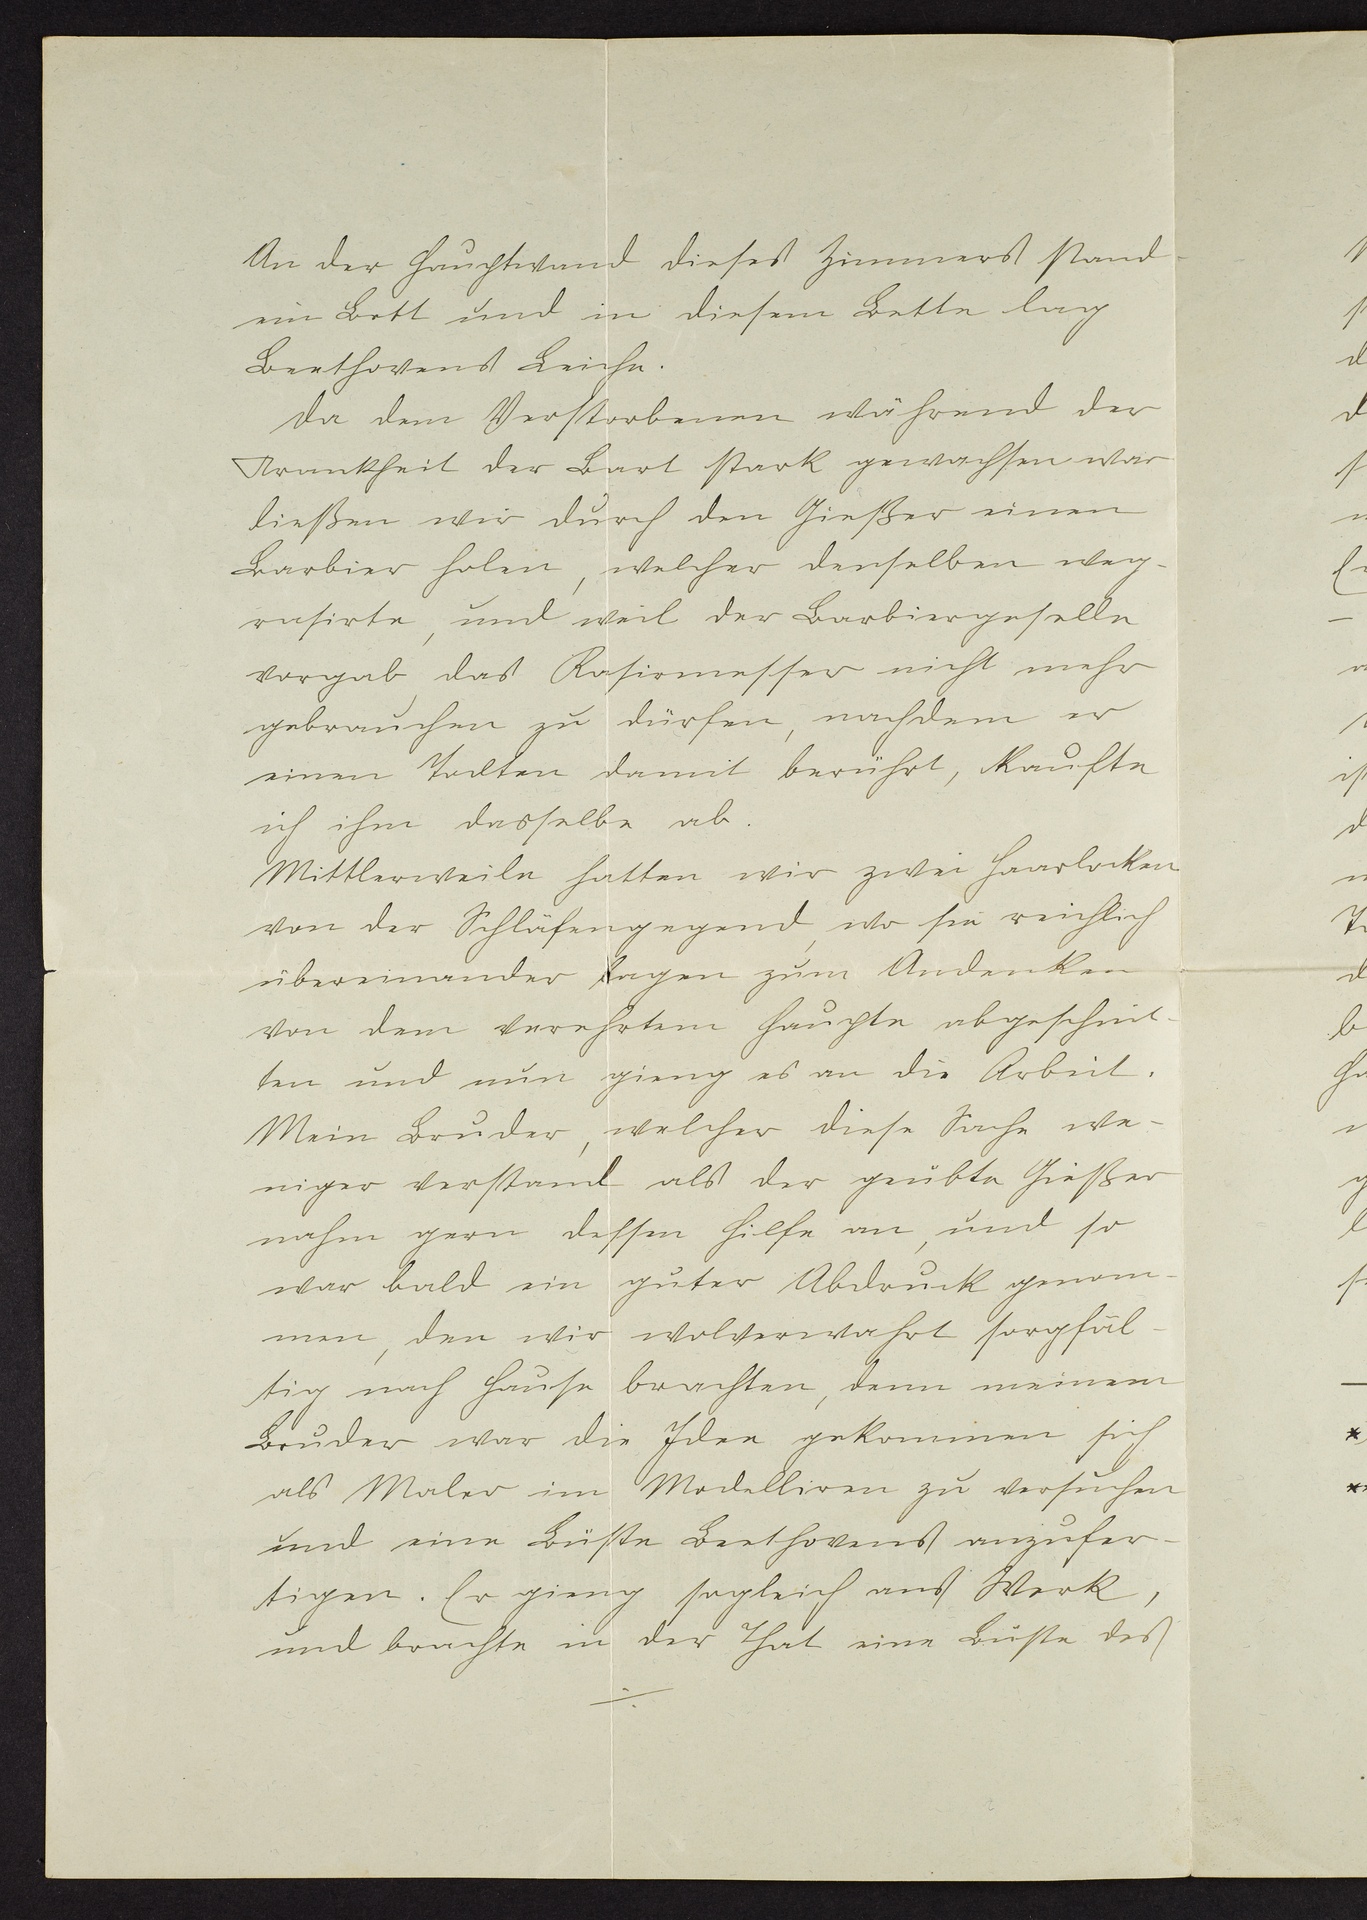 An der Hauptwand dieses Zimmers stand
ein Bett und in diesem Bette lag
Beethovens Leiche.
Da dem Verstorbenen während der
Krankheit der Bart stark gewachsen war
ließen wir durch den Gießer einen
Barbier holen, welcher denselben weg-
rasirte, und weil der Barbiergeselle
vorgab, das Rasirmesser nicht mehr
gebrauchen zu dürfen, nachdem er
einen Todten damit berührt, kaufte
ich ihm dasselbe ab.
Mittlerweile hatten wir zwei Haarlocken
von der Schläfengegend, wo sie reichlich
übereinander lagen zum Andenken
von dem verehrtem Haupte abgeschnit-
ten und nun gieng es an die Arbeit.
Mein Bruder, welcher diese Sache we-
niger verstand als der geübte Gießer
nahm gern dessen Hilfe an, und so
war bald ein guter Abdruck genom-
men, den wir wolverwahrt sorgfäl-
tig nach Hause brachten, denn meinem
Bruder war die Idee gekommen sich
als Maler im Modelliren zu versuchen
und eine Büste Beethovens anzufer-
tigen. Er gieng sogleich ans Werk,
und brachte in der That eine Büste des